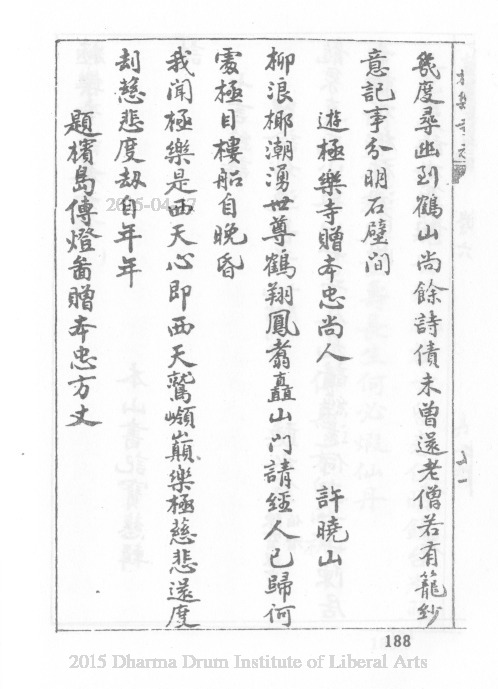 幾度尋幽到鶴山尚餘詩債未曾還老僧若有籠紗
意記事分明石壁間
遊極樂寺贈本忠尚人　許曉山
柳浪椰潮湧世尊鶴翔鳳翥矗山門請經人已歸何
處極目樓船自晚昏
我闻極樂是西天心即西天鷲嶺巔樂極慈悲還度
刦慈悲度刼自年年
題檳島傳燈啚贈本忠方丈
188
2015 Dharma Drum Institute of Liberal Arts